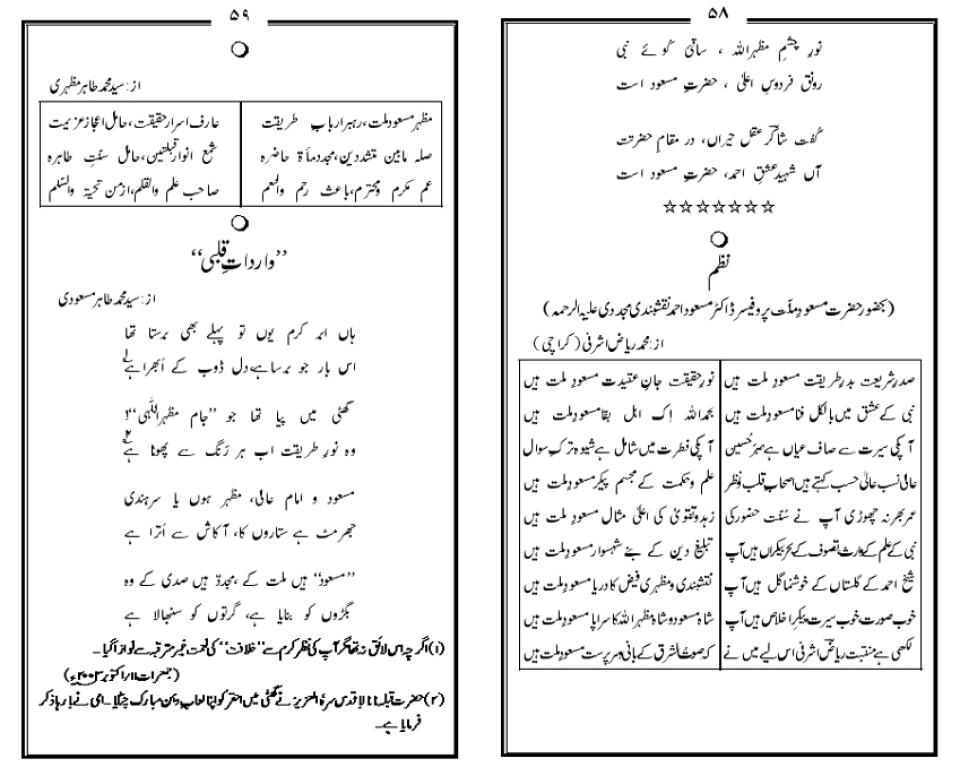 ۵۸
نورِ چشمِ مظہراللہ ، ساقیٔ کوئے نبی
رونقِ فردوسِ اعلیٰ ، حضرتِ مسعود است
گفت شاکرؔ عقل حیراں، در مقامِ حضرتت
آں شہیدِ عشقِ احمد، حضرتِ مسعود است
☆☆☆☆☆☆☆
نظم
(بحضور حضرت مسعودِ ملّت پروفیسر ڈاکٹر مسعود احمد نقشبندی مجددی علیہ الرحمہ)
از: محمد ریاض اشرفی (کراچی)
صدرِ شریعت بدرِ طریقت مسعودِ ملت ہیں نورِ حقیقت جانِ عقیدت مسعودِ ملت ہیں
نبی کے عشق میں بالکل فنا مسعودِ ملت ہیں بحمداللہ اِک اہل بقا مسعودِ ملت ہیں
آپکی سیرت سے صاف عیاں ہے صبرِ حُسین آپکی فطرت میں شامل ہے شیوہ ترکِ سوال
عالی نسب عالی حسب کہتے ہیں اصحابِ قلب و نظر علم و حکمت کے مجسم پیکر مسعودِ ملت ہیں
عمر بھر نہ چھوڑی آپ نے سُنت حضور کی زہد و تقویٰ کی اعلیٰ مثال مسعودِ ملت ہیں
نبی کے علم کے وارث تصوف کے بحرِ بیکراں ہیں آپ تبلیغِ دین کے بنے شہسوار مسعودِ ملت ہیں
شیخ احمد کے گلستاں کے خوشنما گل ہیں آپ نقشبندی و مظہری فیض کا دریا مسعودِ ملت ہیں
خوب صورت خوب سیرت پیکرِ اخلاص ہیں آپ شاہ مسعود و شاہ مظہراللہ کا سراپا مسعودِ ملت ہیں
لکھی ہے منقبت ریاضؔ اشرفی اس لیے میں نے کہ صوت الشرق کے بانی و سرپرست مسعودِ ملت ہیں
۵۹
از: سید محمد طاہر مظہری
مظہرِ مسعودِ ملت، رہبرِ اربابِ طریقت عارفِ اسرارِ حقیقت، حاملِ اعجازِ عزیمت
صلہ مابین متشددین، مجددِ مأة حاضرہ شمعِ انوارِ قبلتین، حاملِ سنّتِ طاہرہ
عمِ مکرم و محترم، باعثِ رحم والنعم صاحبِ علم والقلم، از من تحیۃ والسّلم
’’وارداتِ قلبی‘‘
از: سید محمد طاہر مسعودی
ہاں ابرِ کرم یوں تو پہلے بھی برستا تھا
اس بار جو برسا ہے دل ڈوب کے اُبھرا ہے ۱
گھٹی میں پیا تھا جو ’’جامِ مظہراللّٰہی‘‘ ۲
وہ نورِ طریقت اب ہر رَنگ سے پھوٹا ہے
مسعود و امامِ عالی، مظہر ہوں یا سرہندی
جھرمٹ ہے ستاروں کا، آکاش سے اُترا ہے
’’مسعود‘‘ ہیں ملت کے، مجددّ ہیں صدی کے وہ
بگڑوں کو بنایا ہے، گرتوں کو سنبھالا ہے
(۱) اگرچہ اس لائق نہ تھا مگر آپ کی نظرِ کرم سے ’’خلافت‘‘ کی نعمت غیر مترقبہ سے نوازا گیا۔
(جمعرات ۱۱/اکتوبر ۲۰۰۳ء)
(۲) حضرت قبلہ نانا لالا قدس سرہٗ العزیز نے گھٹی میں احقر کو اپنا لعابِ دہن مبارک چٹایا۔ امی نے بارہا ذکر
فرمایا ہے۔